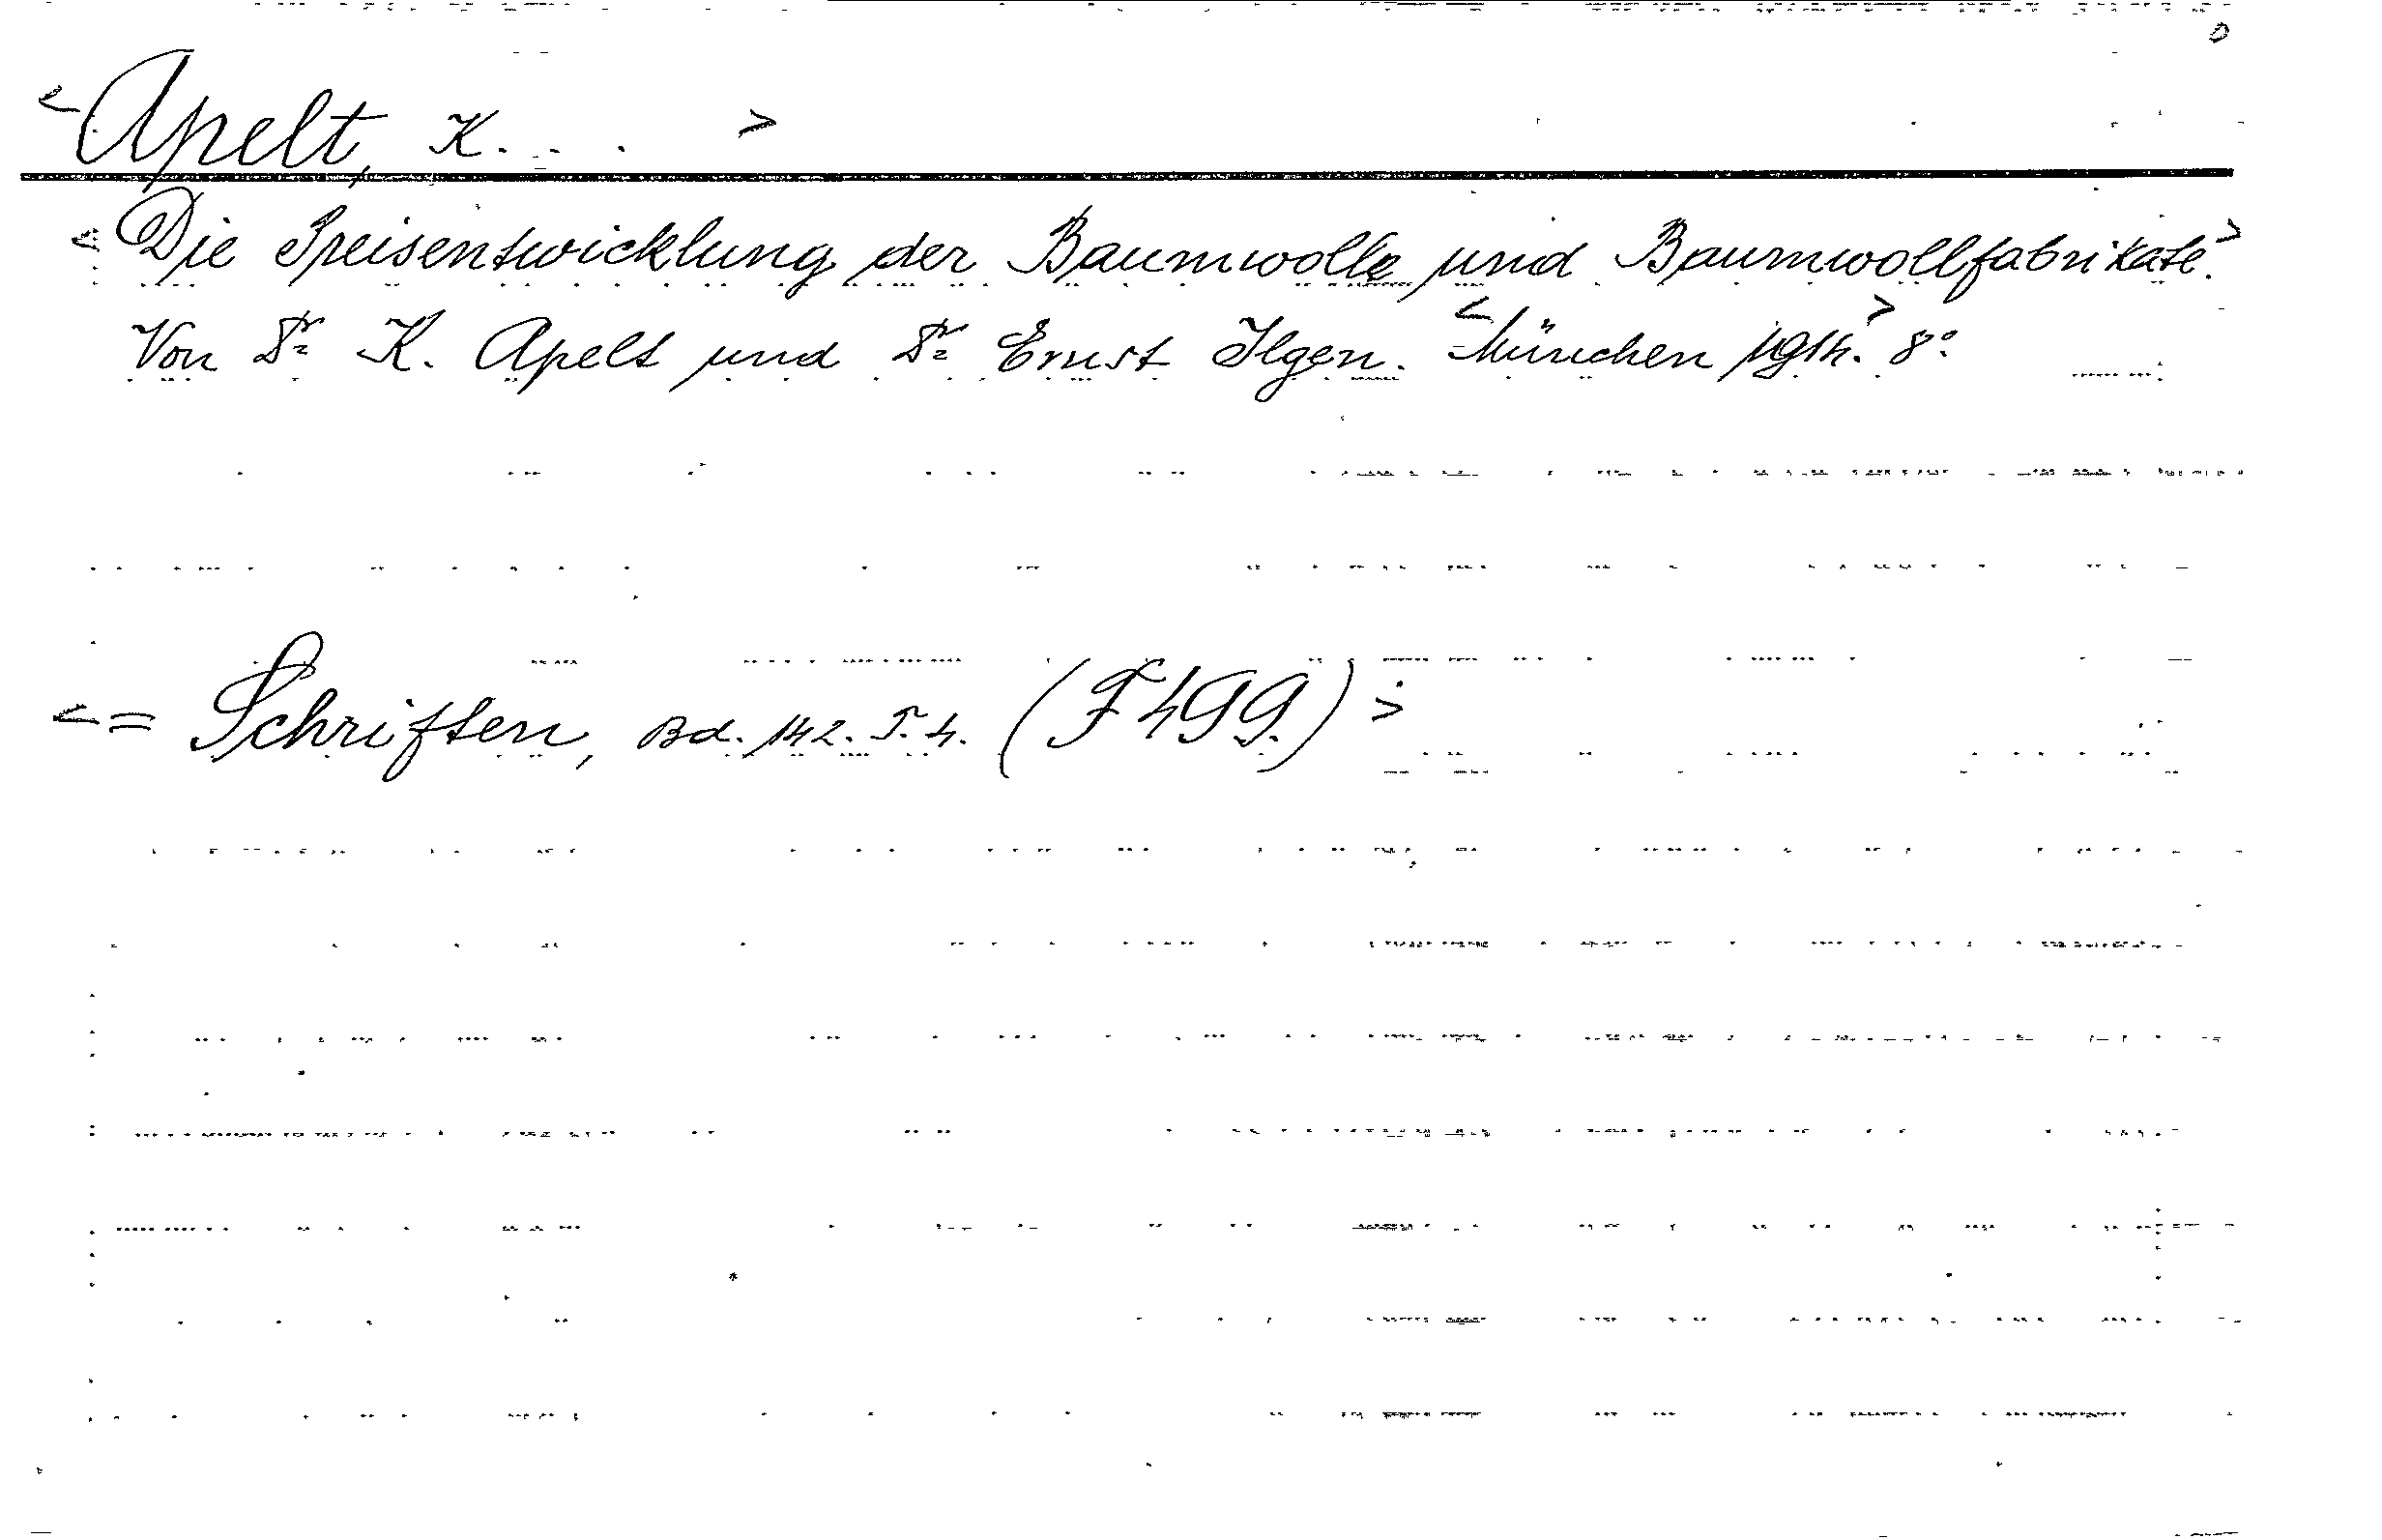 <Apelt, K. . . . >
<Die Preisentwicklung der Baumwolle und Baumwollfabrikate.>
Von Dr K. Apelt und Dr Ernst Ilgen. <München 1914.> 8°
<= Schriften, Bd. 142. T. 4. (F 499.)>